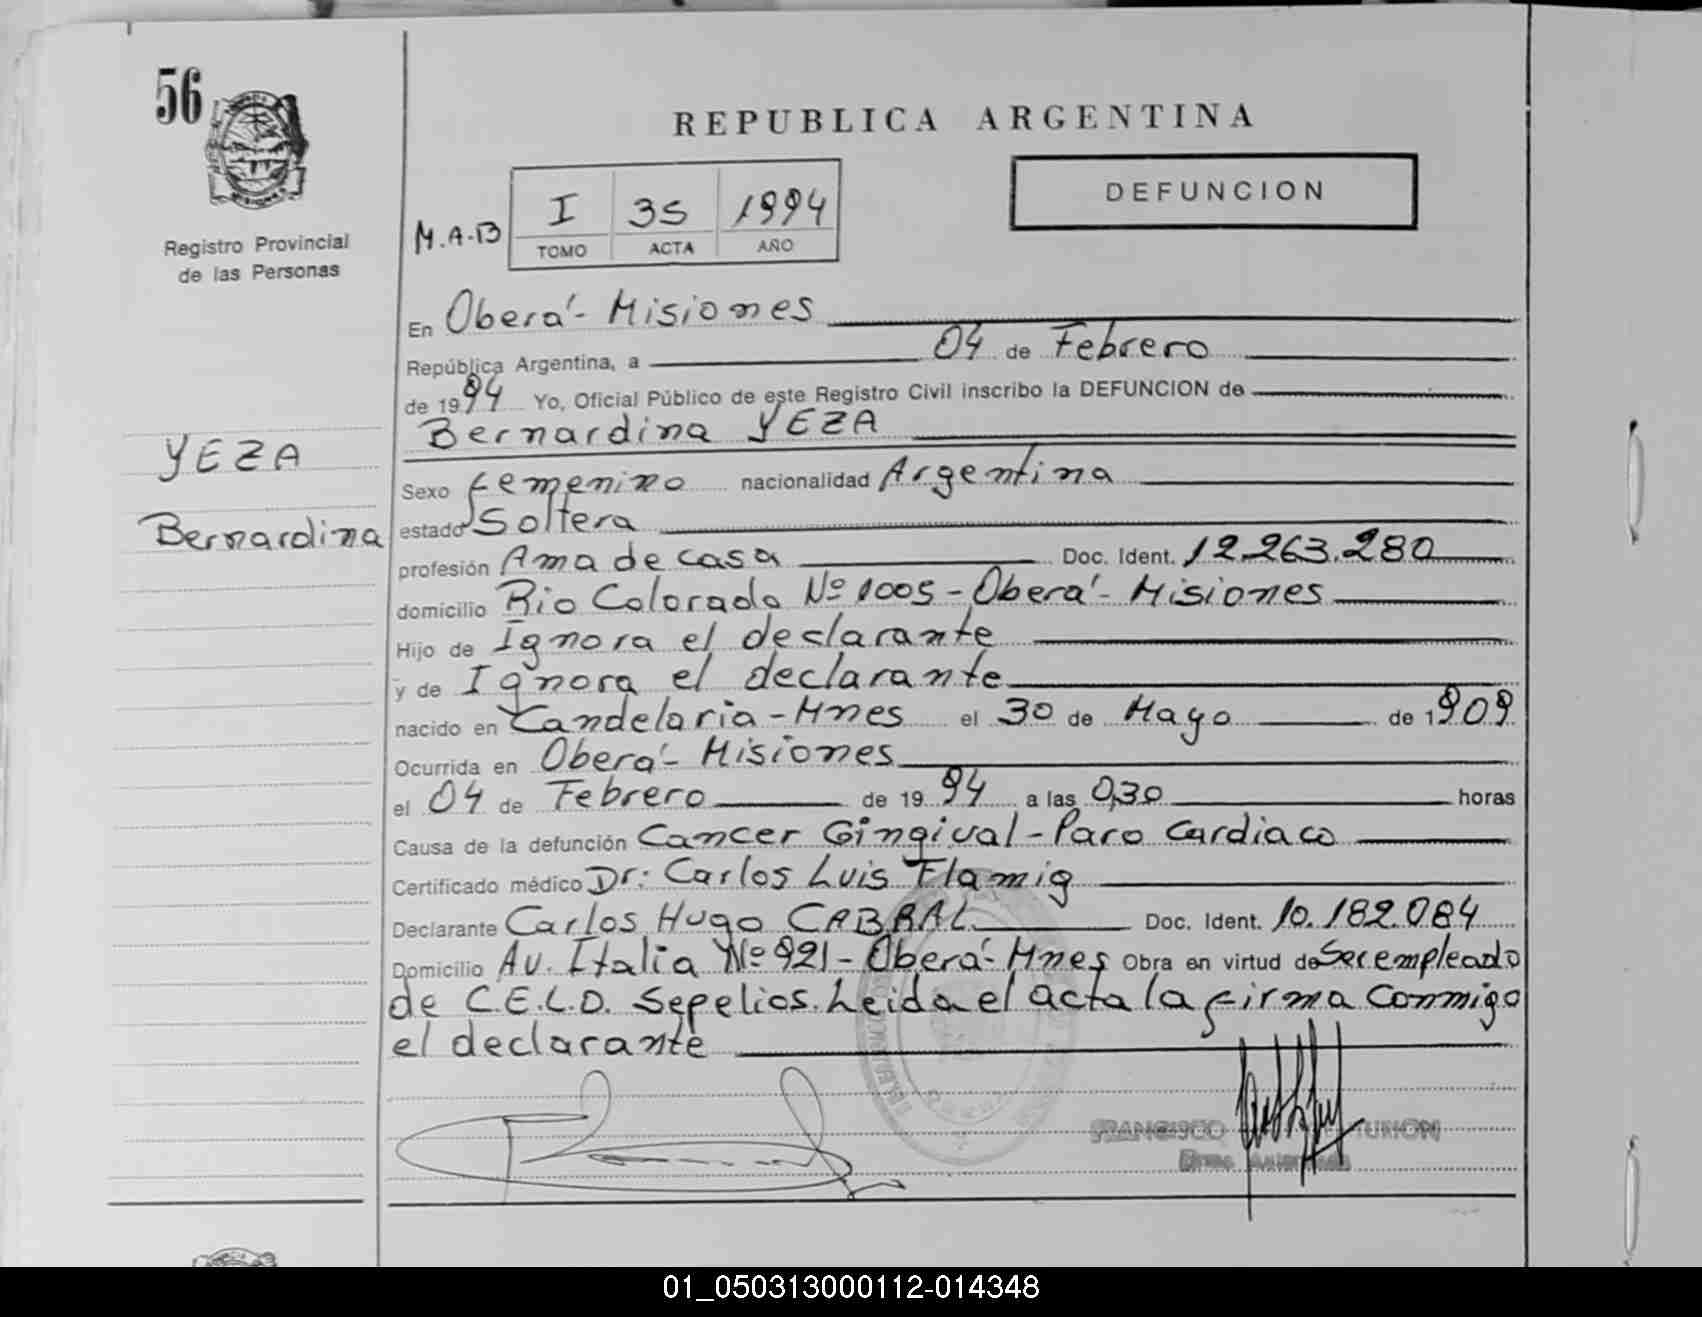 56
REPUBLICA ARGENTINA
DEFUNCION
Registro Provincial
de las Personas
M.A.B
I 35 1994
TOMO ACTA AÑO
En Oberá - Misiones
República Argentina, a 04 de Febrero
de 1994 Yo, Oficial Público de este Registro Civil inscribo la DEFUNCION de
Bernardina YEZA
YEZA
Bernardina
Sexo femenino nacionalidad Argentina
estado Soltera
profesión Ama de casa Doc. Ident. 12.263.280
domicilio Rio Colorado Nº 1005 - Oberá - Misiones
Hijo de Ignora el declarante
y de Ignora el declarante
nacido en Candelaria - Mnes el 30 de Mayo de 1909
Ocurrida en Oberá - Misiones
el 04 de Febrero de 1994 a las 0,30 horas
Causa de la defunción Cancer Gingival - Paro Cardiaco
Certificado médico Dr: Carlos Luis Flamig
Declarante Carlos Hugo CABRAL Doc. Ident. 10.182.084
Domicilio Av. Italia Nº 921 - Oberá - Mnes Obra en virtud de Ser empleado
de C.E.L.O. Sepelios. Leida el acta la firma conmigo
el declarante
FRANCISCO
01_050313000112-014348